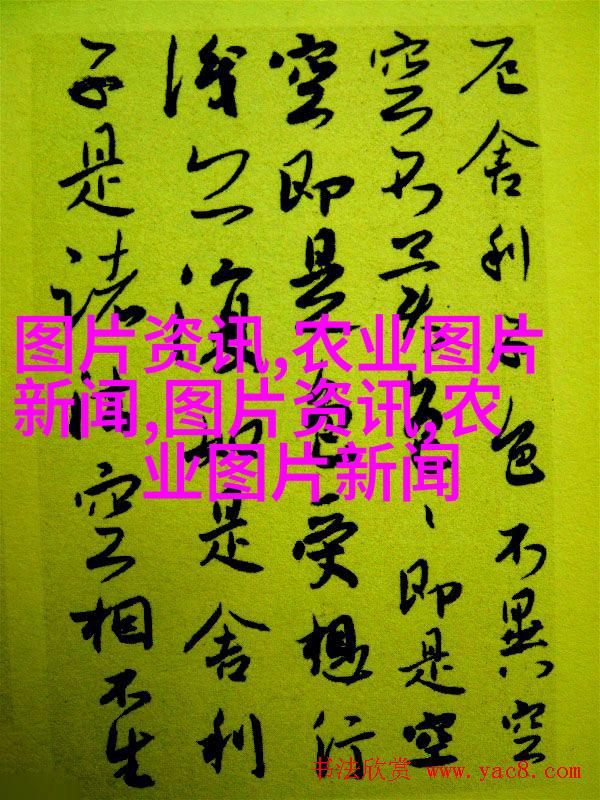 厄舍利子色不異空
空不異色々即是空
空即是色受想行
識亦復如是舍利
子是諸法空相不生
图片资讯,农业图片
新闻,图片资讯,农
业图片新闻
书法欣赏 www.yac8.com